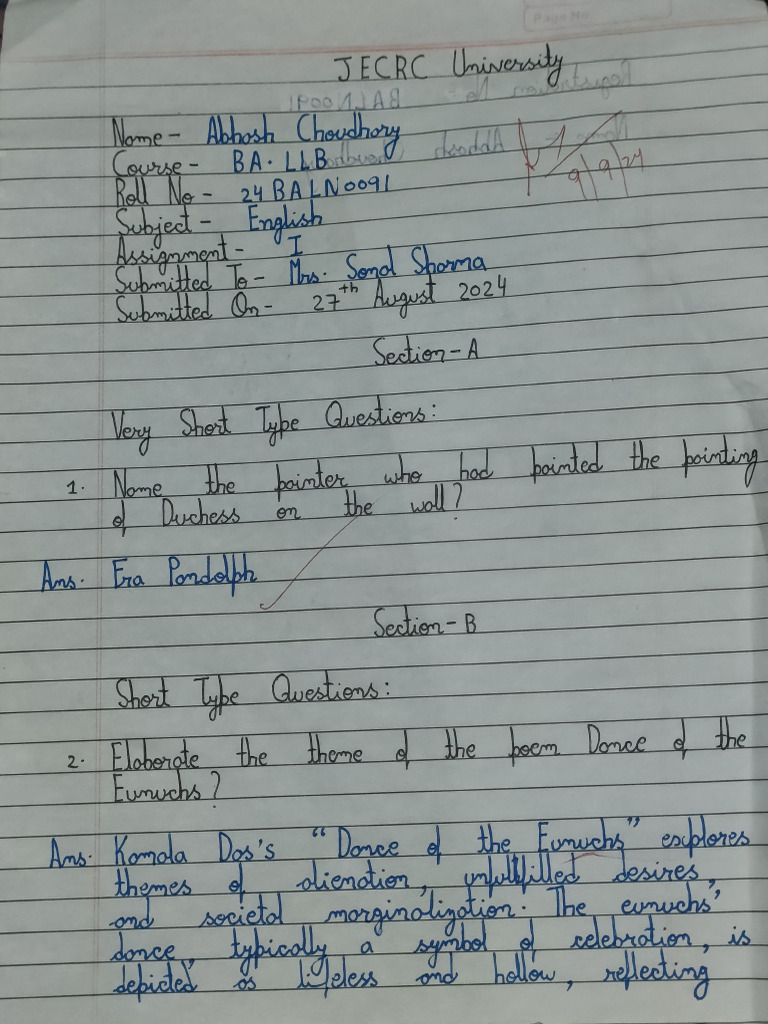 Page No.
JECRC University
Name - Abhash Choudhary
Course - BA. LLB
Roll No - 24BALN0091
Subject - English
Assignment - I
Submitted To - Mrs. Sonal Sharma
Submitted On - 27th August 2024
9/9/24
Section - A
Very Short Type Questions:
1. Name the painter who had painted the painting
of Duchess on the wall?
Ans. Fra Pandolph
Section - B
Short Type Questions:
2. Elaborate the theme of the poem Dance of the
Eunuchs?
Ans. Kamala Das's "Dance of the Eunuchs" explores
themes of alienation, unfulfilled desires,
and societal marginalization. The eunuchs'
dance, typically a symbol of celebration, is
depicted as lifeless and hollow, reflecting